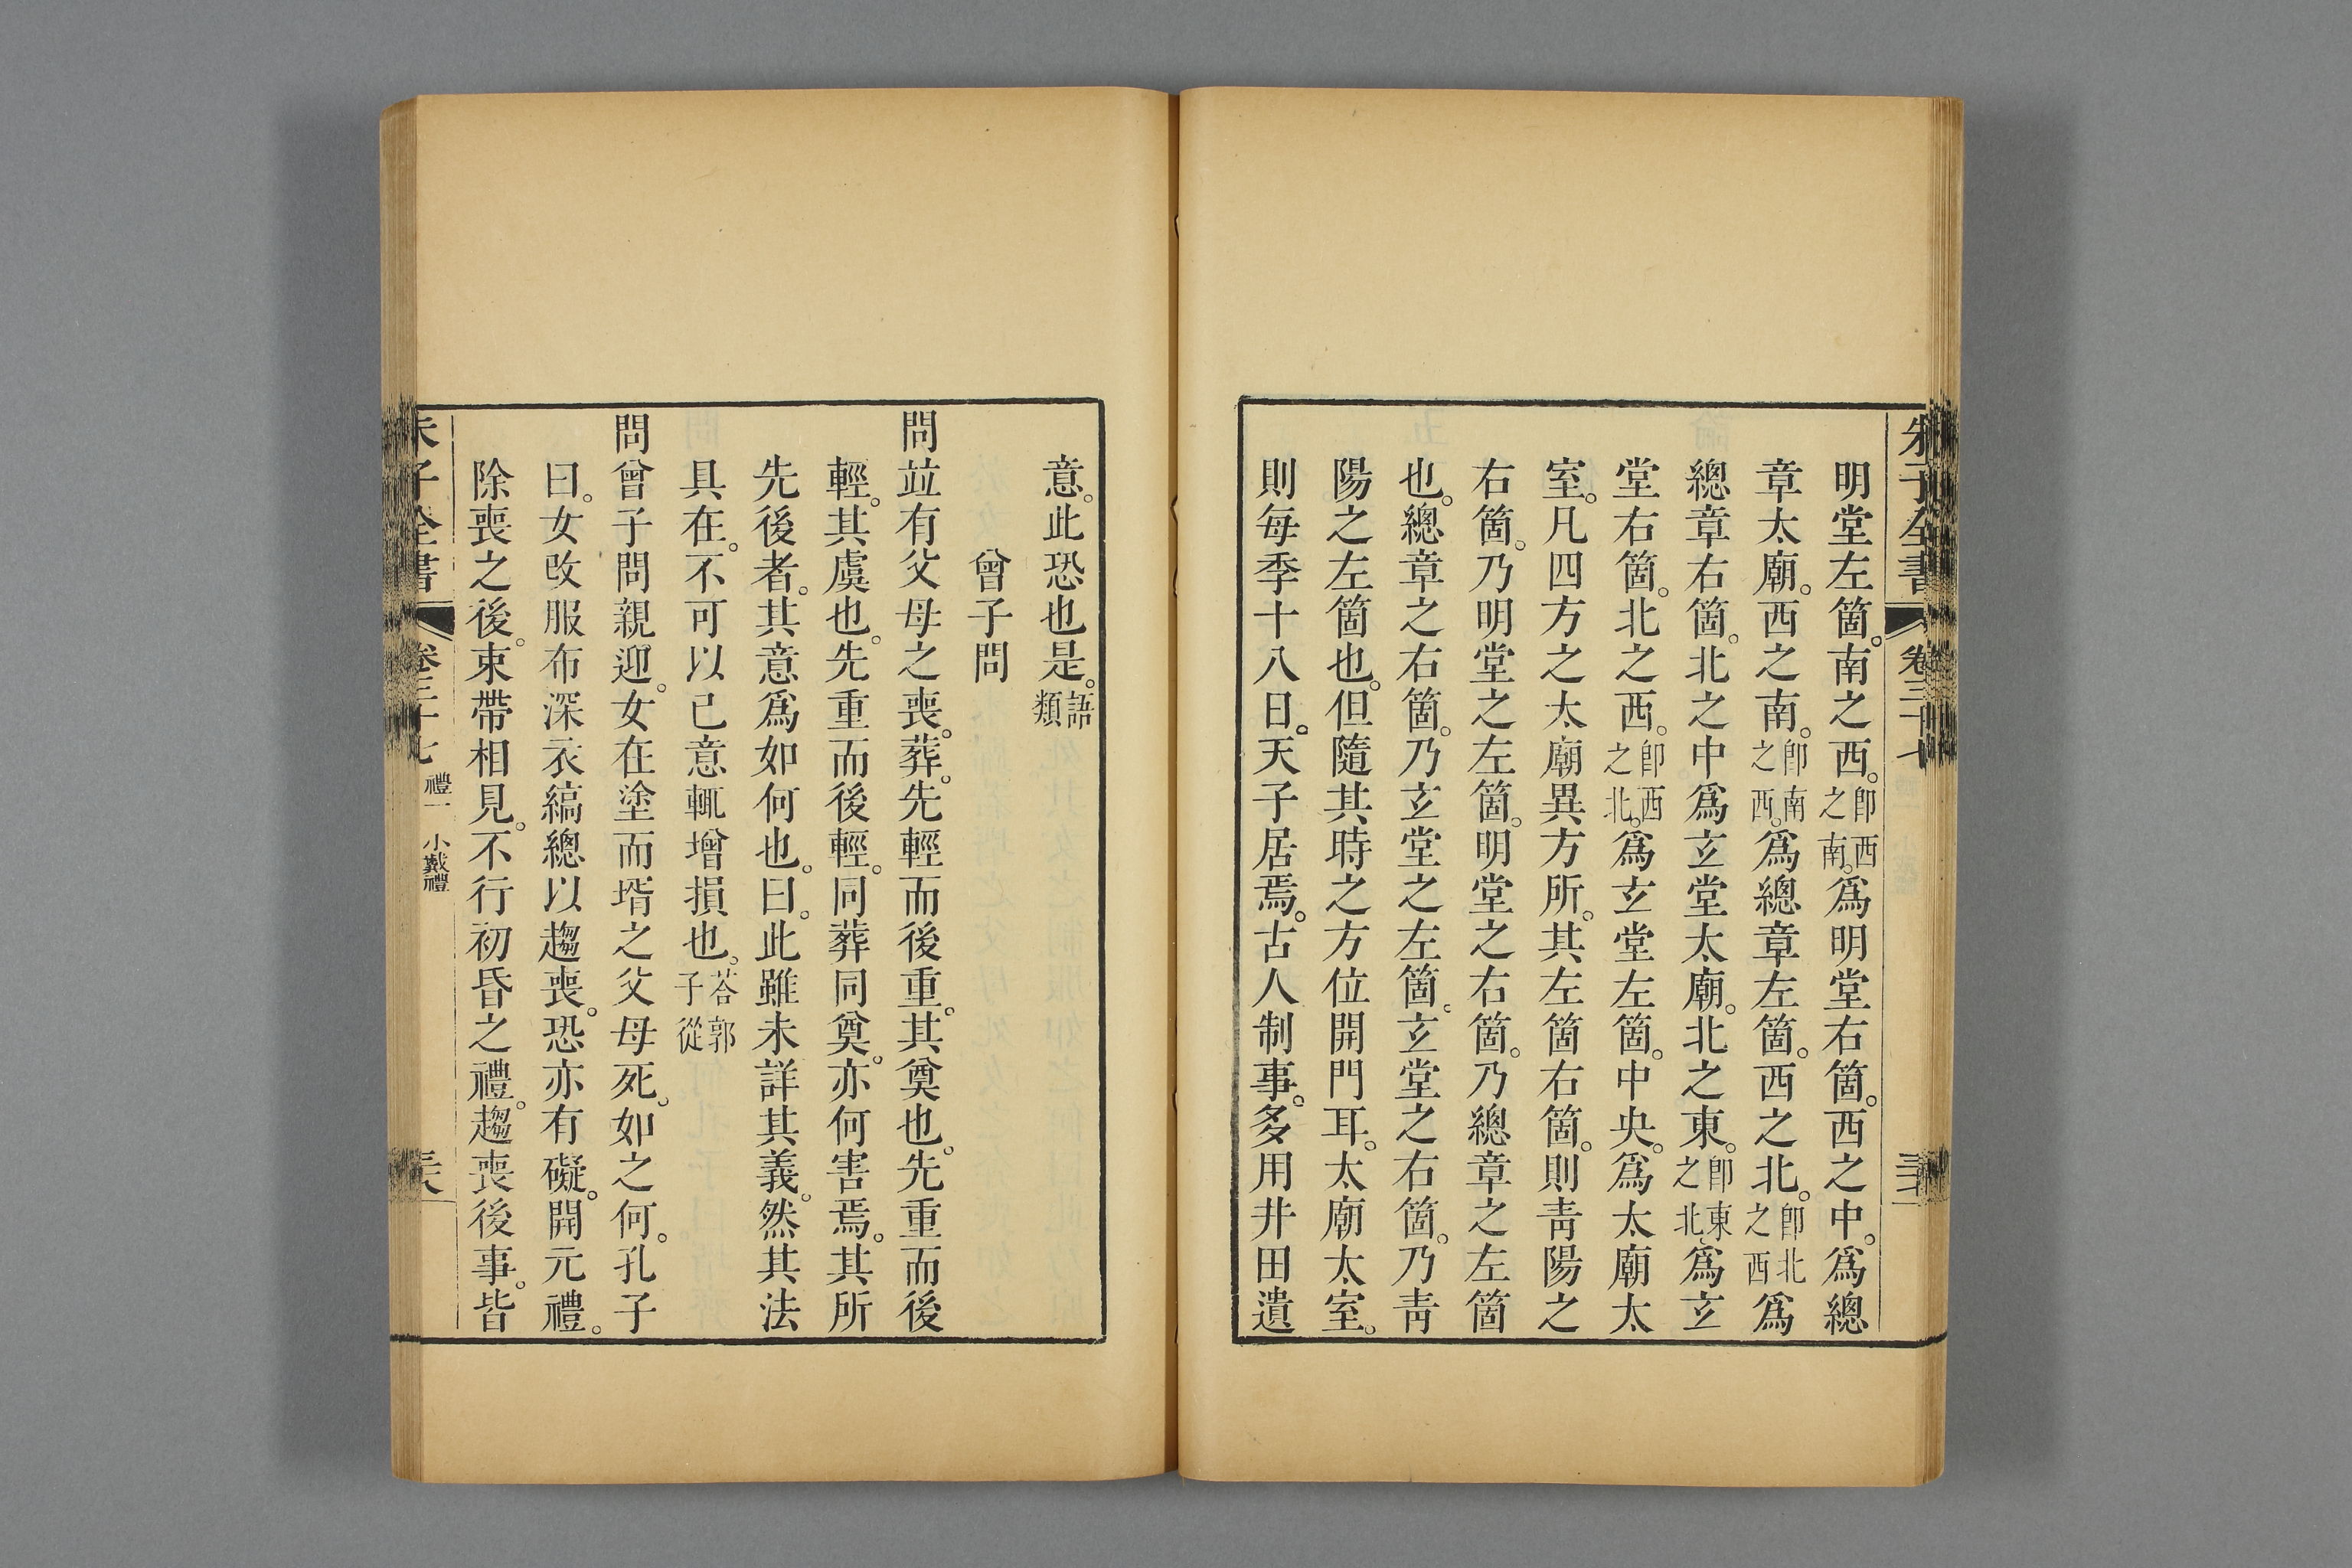 朱子全書 卷三十七
明堂左箇。南之西。卽西之南。爲明堂右箇。西之中。爲總
章太廟。西之南。卽南之西。爲總章左箇。西之北。卽北之西爲
總章右箇。北之中爲玄堂太廟。北之東。卽東之北。爲玄
堂右箇。北之西。卽西之北。爲玄堂左箇。中央。爲太廟太
室。凡四方之太廟異方所。其左箇右箇。則靑陽之
右箇。乃明堂之左箇。明堂之右箇。乃總章之左箇
也。總章之右箇。乃玄堂之左箇。玄堂之右箇。乃靑
陽之左箇也。但隨其時之方位開門耳。太廟太室。
則每季十八日。天子居焉。古人制事。多用井田遺
意。此恐也是。語類
曾子問
問竝有父母之喪。葬。先輕而後重。其奠也。先重而後
輕。其虞也。先重而後輕。同葬同奠。亦何害焉。其所
先後者。其意爲如何也。曰。此雖未詳其義。然其法
具在。不可以己意輒增損也。荅郭子從
問曾子問親迎。女在塗而壻之父母死。如之何。孔子
曰。女改服布深衣縞總以趨喪。恐亦有礙。開元禮。
除喪之後。束帶相見。不行初昏之禮。趨喪後事。皆
朱子全書 卷三十七 禮一 小戴禮